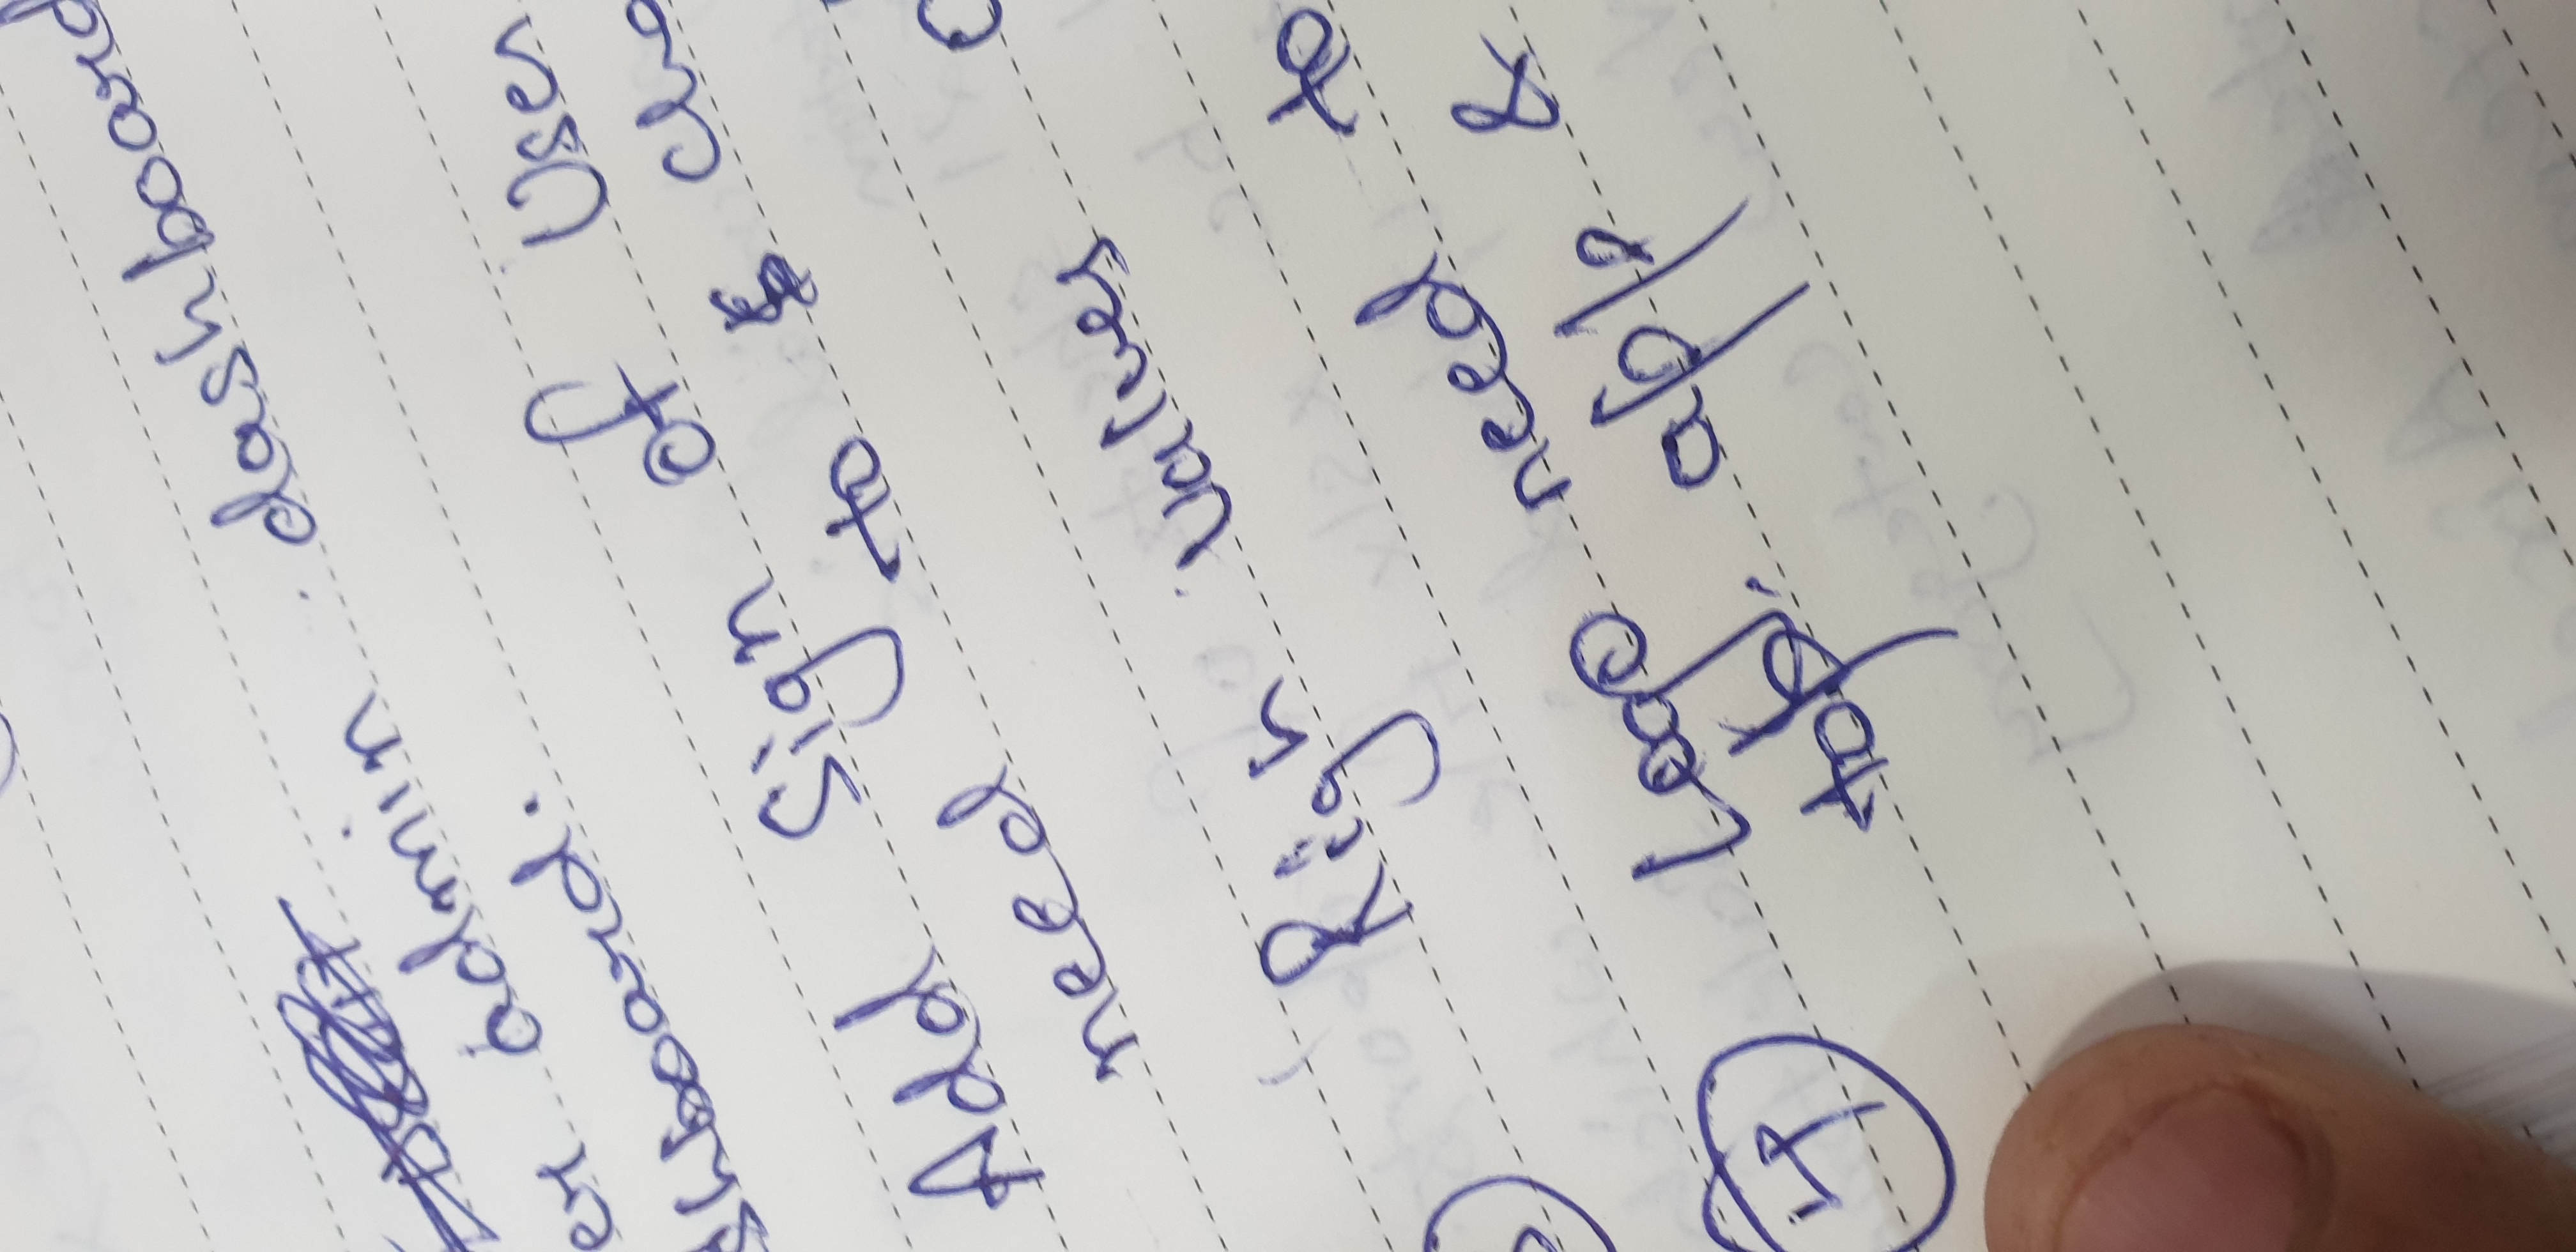 er admin dashboard
shboard.
Add Sign of User
need to
Righ values
④ Logo need to
top. app &